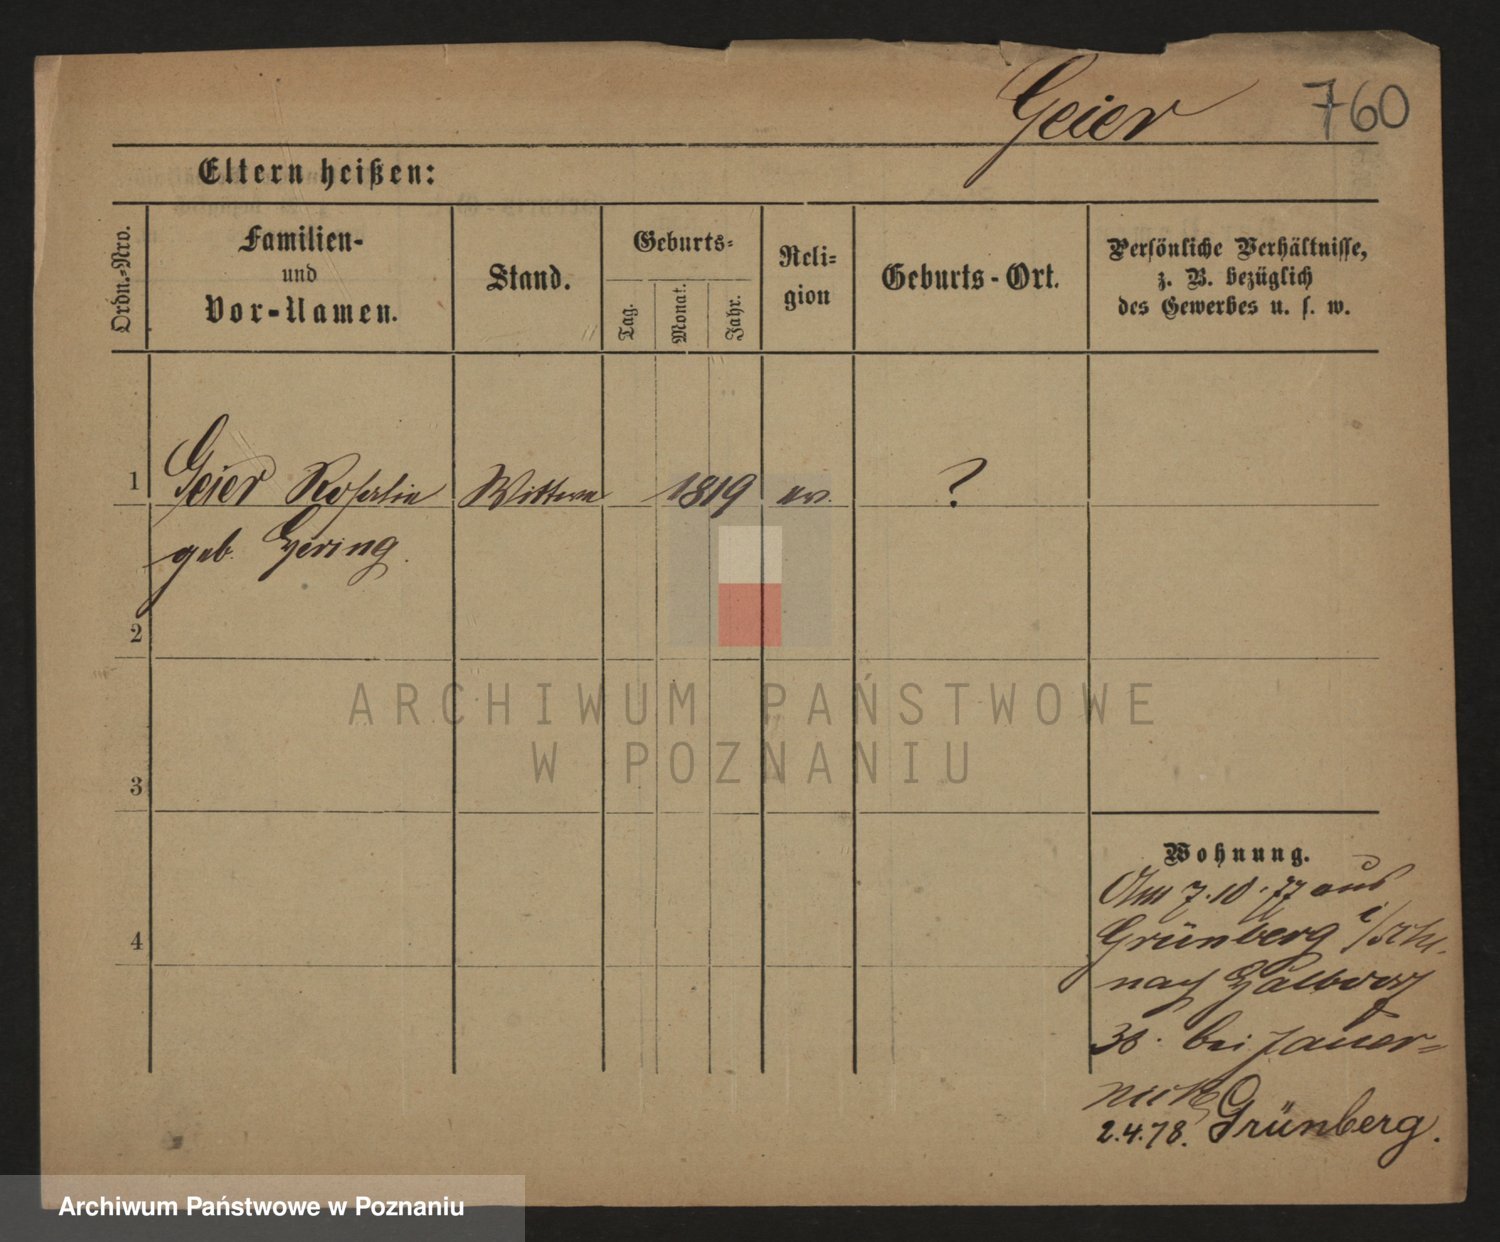 Geier 760
Eltern heißen:
Ordn.-Nro.
Familien-
und
Vor-Namen.
Stand.
Geburts-
Tag.
Monat.
Jahr.
Reli-
gion
Geburts-Ort.
Persönliche Verhältnisse,
z. B. bezüglich
des Gewerbes u. s. w.
1 Geier Rosalie Wittwe 1819 ev. ?
geb.
2
3
4
Wohnung.
Am 7.10.77 aus
Grünberg i/Schl.
nach
38. bei Jauer-
nick
2.4.78. Grünberg.
ARCHIWUM PAŃSTWOWE
W POZNANIU
Archiwum Państwowe w Poznaniu